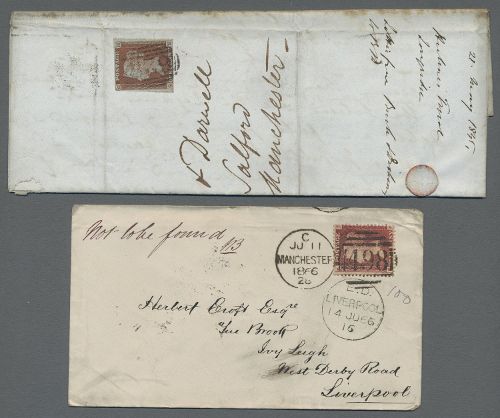 & Darwell
Salford
Manchester
21 May 1845
Letter from
Not to be found
C
JU 11
MANCHESTER
1866
26
498
L.D.
LIVERPOOL
14 JU 66
16
100
Herbert Croft Esqre
Tue Brook
Ivy Leigh
West Derby Road
Liverpool